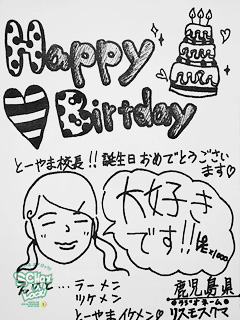 Happy
Birtday
とーやま校長!!誕生日おめでとうござい
ます♡
大好き
です!!
鹿児島県
ラジオネーム
リスモスクマ
ラーメン
ツケメン
とーやまイケメン♡